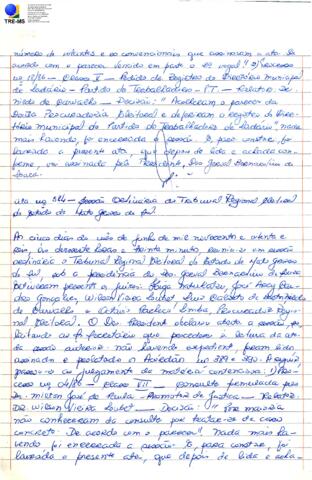 TRE-MS
número de votantes e os convencionais que assinaram a ata. De
acordo com o parecer
nº 12/86 - Classe V - Pedido de Registro do Diretório Municipal
de Ladário - Partido dos Trabalhadores - PT. - Relator: De
de Carvalho - Decisão: "Acolheram o parecer da
Douta Procuradoria Eleitoral e deferiram o registro do Dire-
tório Municipal do Partido dos Trabalhadores de Ladário". nada
mais havendo, foi encerrada a sessão. E, para constar, foi
lavrada a presente ata, que depois de lida e achada con-
forme, vai assinada pelo Presidente, Des.
Souza.
Ata nº 384 - Sessão Ordinária do Tribunal Regional Eleitoral
do Estado de Mato Grosso do Sul.
Aos cinco dias do mês de junho de mil novecentos e oitenta e
seis, às dezessete horas e trinta minutos, reuniu-se em sessão
ordinária o Tribunal Regional Eleitoral do Estado de Mato Grosso
do Sul, sob a presidência do
Estiveram presentes os juízes:
Gonçalves, Wilson Vieira Loubet, Luiz Calixto de
de Carvalho e Procurador Regio-
nal Eleitoral. O Des. Presidente declarou aberta a sessão, so-
licitando ao Sr. Secretário que procedesse à leitura da ata
da sessão anterior. não havendo expediente, foram lidos,
assinados e publicados os Acórdãos nºs 389 e 390. A seguir
passou-se ao julgamento da matéria contenciosa: 1) Pro-
cesso nº 04/86 - Classe VII - Consulta formulada pelo
Dr. Milton José de Paula - Promotor de Justiça - Relator:
Dr. Wilson Vieira Loubet - Decisão: "Por maioria
não conheceram da consulta por tratar-se de caso
concreto. De acordo com o parecer". Nada mais ha-
vendo foi encerrada a sessão. E, para constar, foi
lavrada a presente ata, que depois de lida e acha-